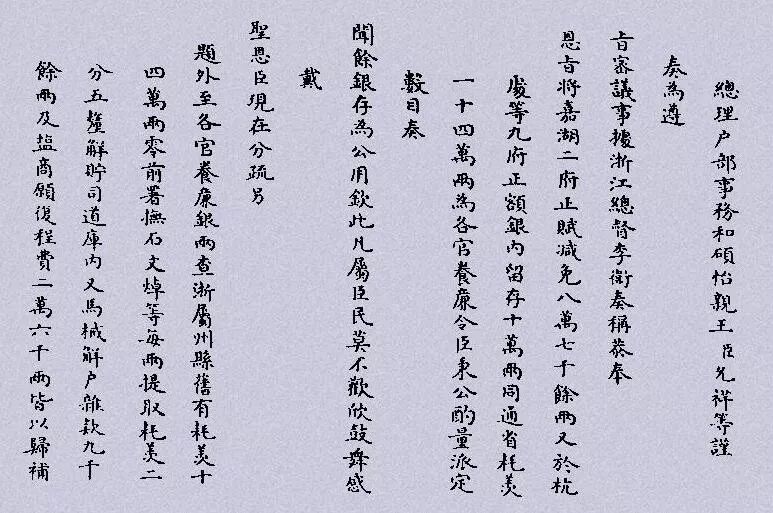 總理户部事務和碩怡親王臣允祥等謹
奏為遵
旨審議事據浙江總督李衛奏稱恭奉
恩旨將嘉湖二府正賦減免八萬七千餘兩又於杭
處等九府正額銀内留存十萬兩同通省耗羨
一十四萬兩為各官養廉令臣秉公酌量派定
數目奏
聞餘銀存為公用欽此凡屬臣民莫不歡欣鼓舞感
戴
聖恩臣現在分疏另
題外至各官養廉銀兩查浙屬州縣舊有耗羨十
四萬兩零前署撫石文焯等每兩提取耗羨二
分五釐解貯司道庫内又馬械解户雜款九千
餘兩及塩商願復程費二萬六千兩皆以歸補